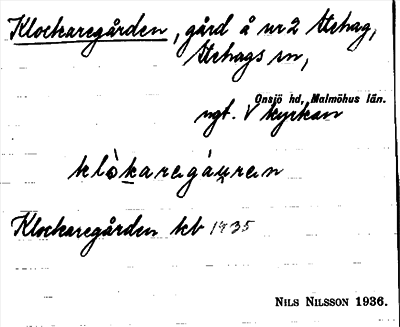 Klockaregården, gård å nr 2 Stehag,
Stehags sn,
Onsjö hd, Malmöhus län.
ngt. V kyrkan
klòkaregáuren
Klockaregården kb 1935
NILS NILSSON 1936.